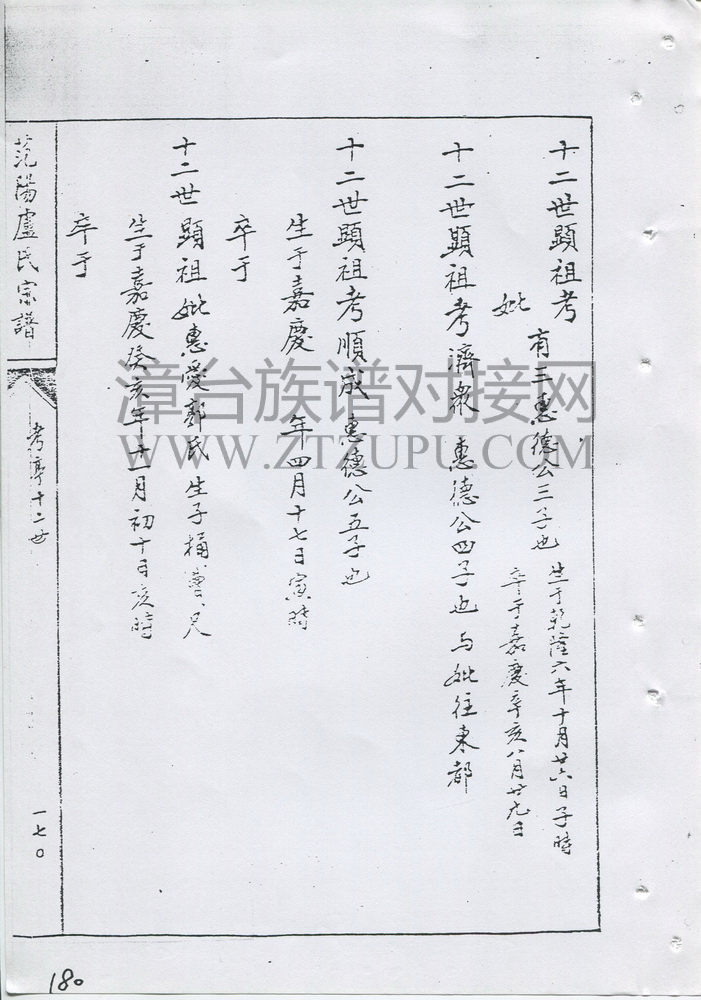 十二世顯祖考
有三 惠德公三子也
生于乾隆六年十月廿六日子時
卒于嘉慶辛亥八月廿九日
妣
十二世顯祖考濟眾 惠德公四子也 与妣往東都
十二世顯祖考順成 惠德公五子也
生于嘉慶 年四月十七日寅時
卒于
十二世顯祖妣惠愛郭氏 生子桶
生于嘉慶癸亥年十一月初十日亥時
卒于
范陽盧氏宗譜
考亭十二世
一七〇
180
漳台族谱对接网
WWW.ZTZUPU.COM